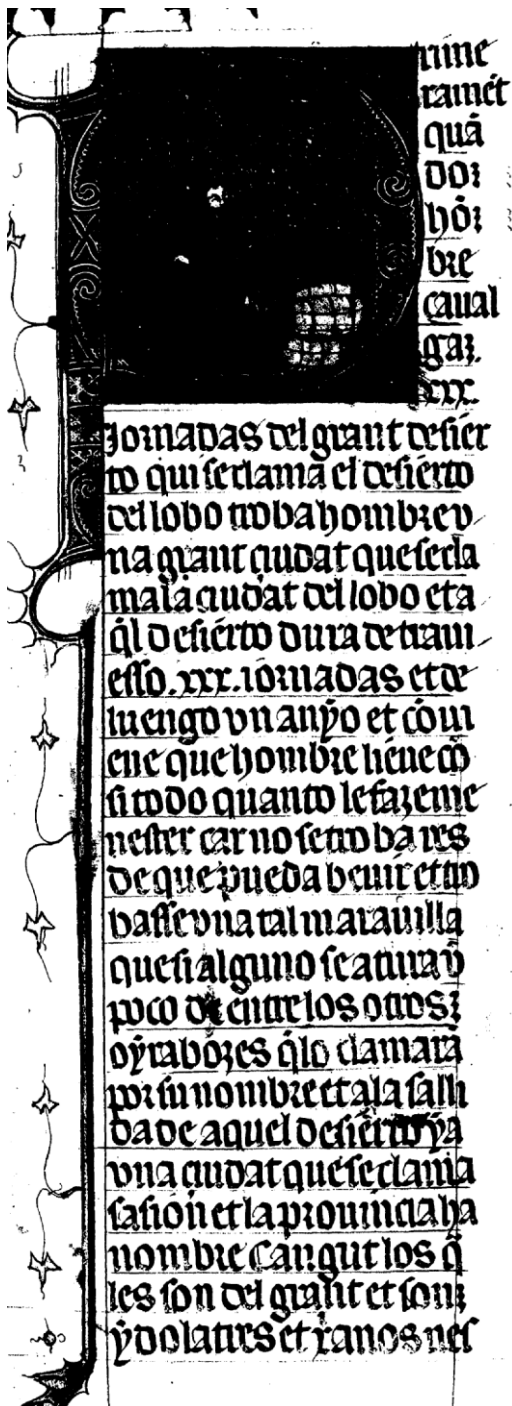 rime
ramēt
quā
doꝛ
hōꝛ
bꝛe
caual
gaꝛ.
xxx.
Joꝛnadas del grant desier
to qui se clama el desierto
del lobo troba hombꝛe v
na grant ciudat que se cla
ma la ciudat del lobo et a
q̄l desierto dura de traui
esso .xxx. ioꝛnadas et de
luengo vn anyo et cōui
ene que hombꝛe lieue cō
si todo quanto le faze me
nester car no se troba res
de que pueda beuir et tro
basse vna tal marauilla
que si alguno se atura ū
poco de entre los otros ꝛ
oyra bozes q̄ lo clamarā
poꝛ su nombꝛe et a la salli
da de aquel desierto ya
vna ciudat que se clama
sasion et la pꝛouincia ha
nombꝛe Cangut los q̄
les son del grant et son ꝛ
ydolatres et xanos nes